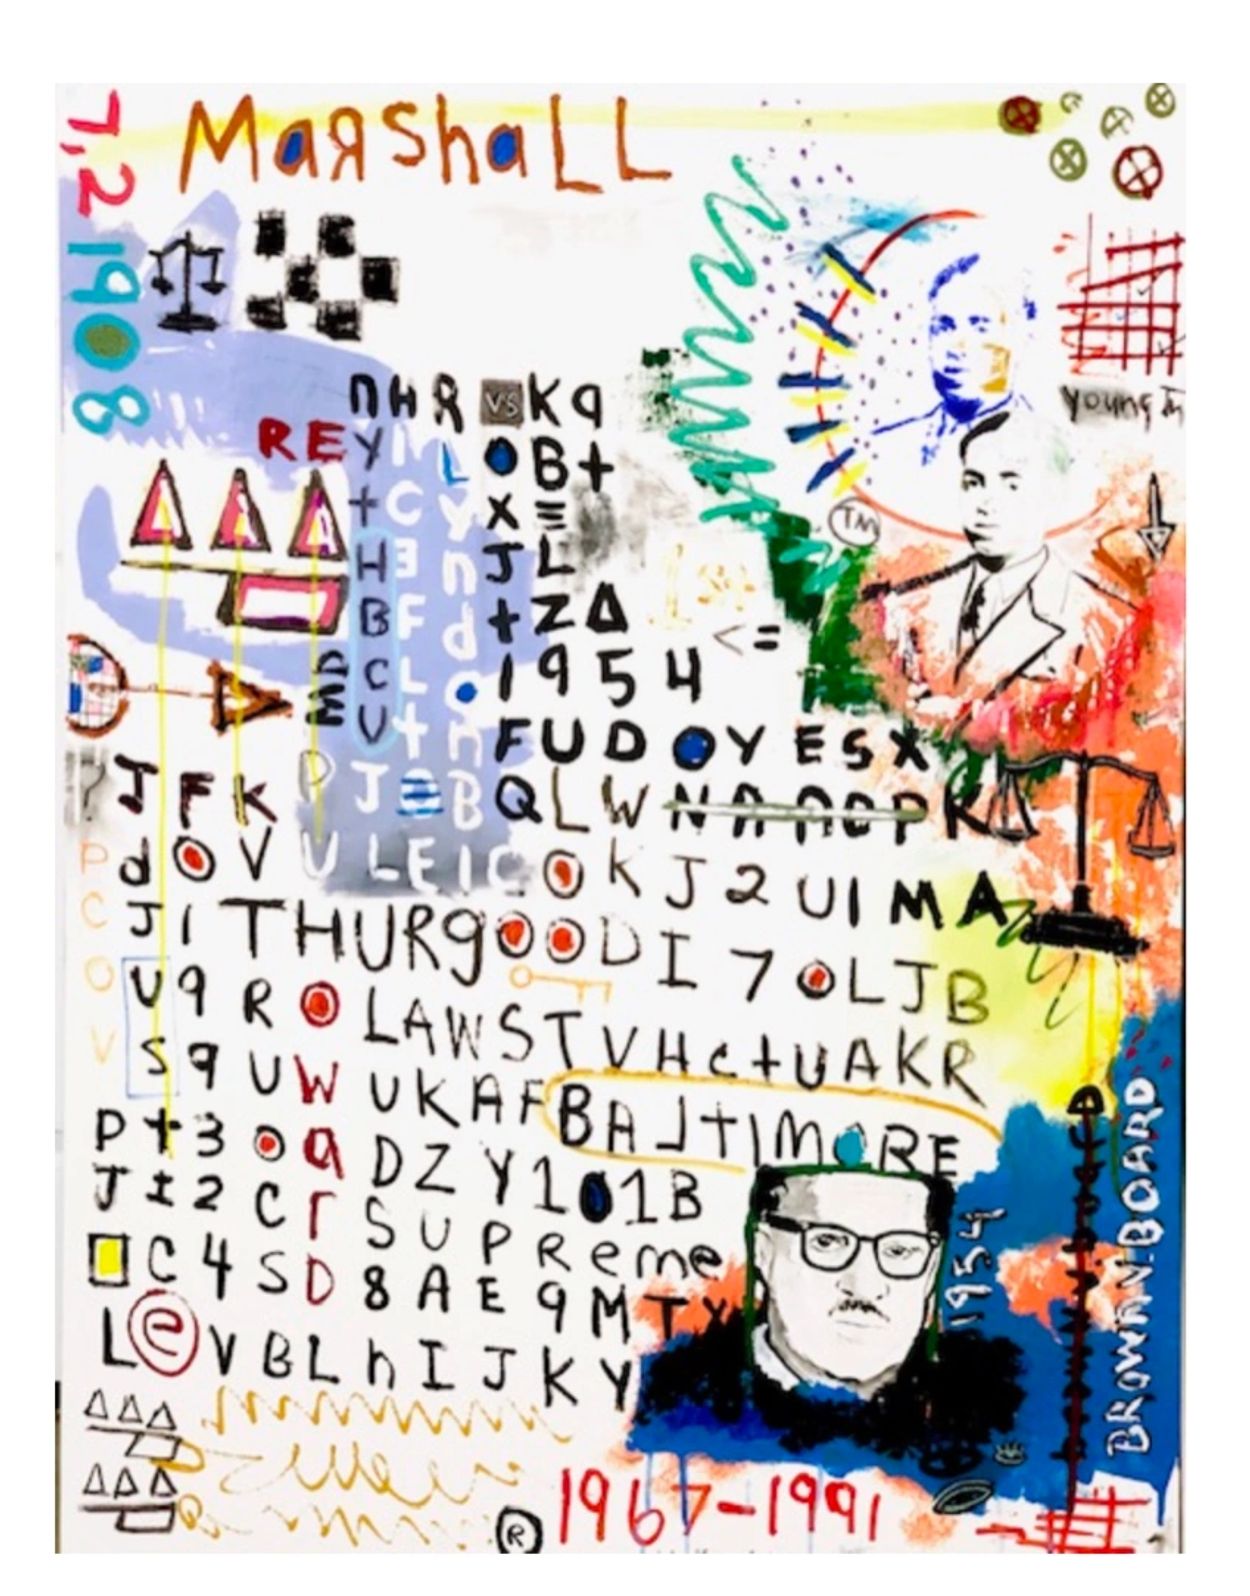 MaRshaLL
7,2 1908
young
n H R VS K 9
RE Y I L O B +
+ C y X Ξ
H E n J L
B F d + Z Δ
<=
C L o 1 9 5 4
V t n F U D O Y E S X
J F K D J B Q L W N A A C P R
d O V U L E I C O K J 2 U I M A
J I T H U R g O O D I 7 O L J B
U 9 R O L A W S T V H C t U A K R
S 9 U W U K A F B A L T I M O R E
P + 3 O a D Z Y 1 0 1 B
J I 2 C r S U P R e m e
C 4 S D 8 A E 9 M T Y
L e V B L h I J K Y
P
C
O
V
TM
1954
BROWN V. BOARD
® 1967-1991